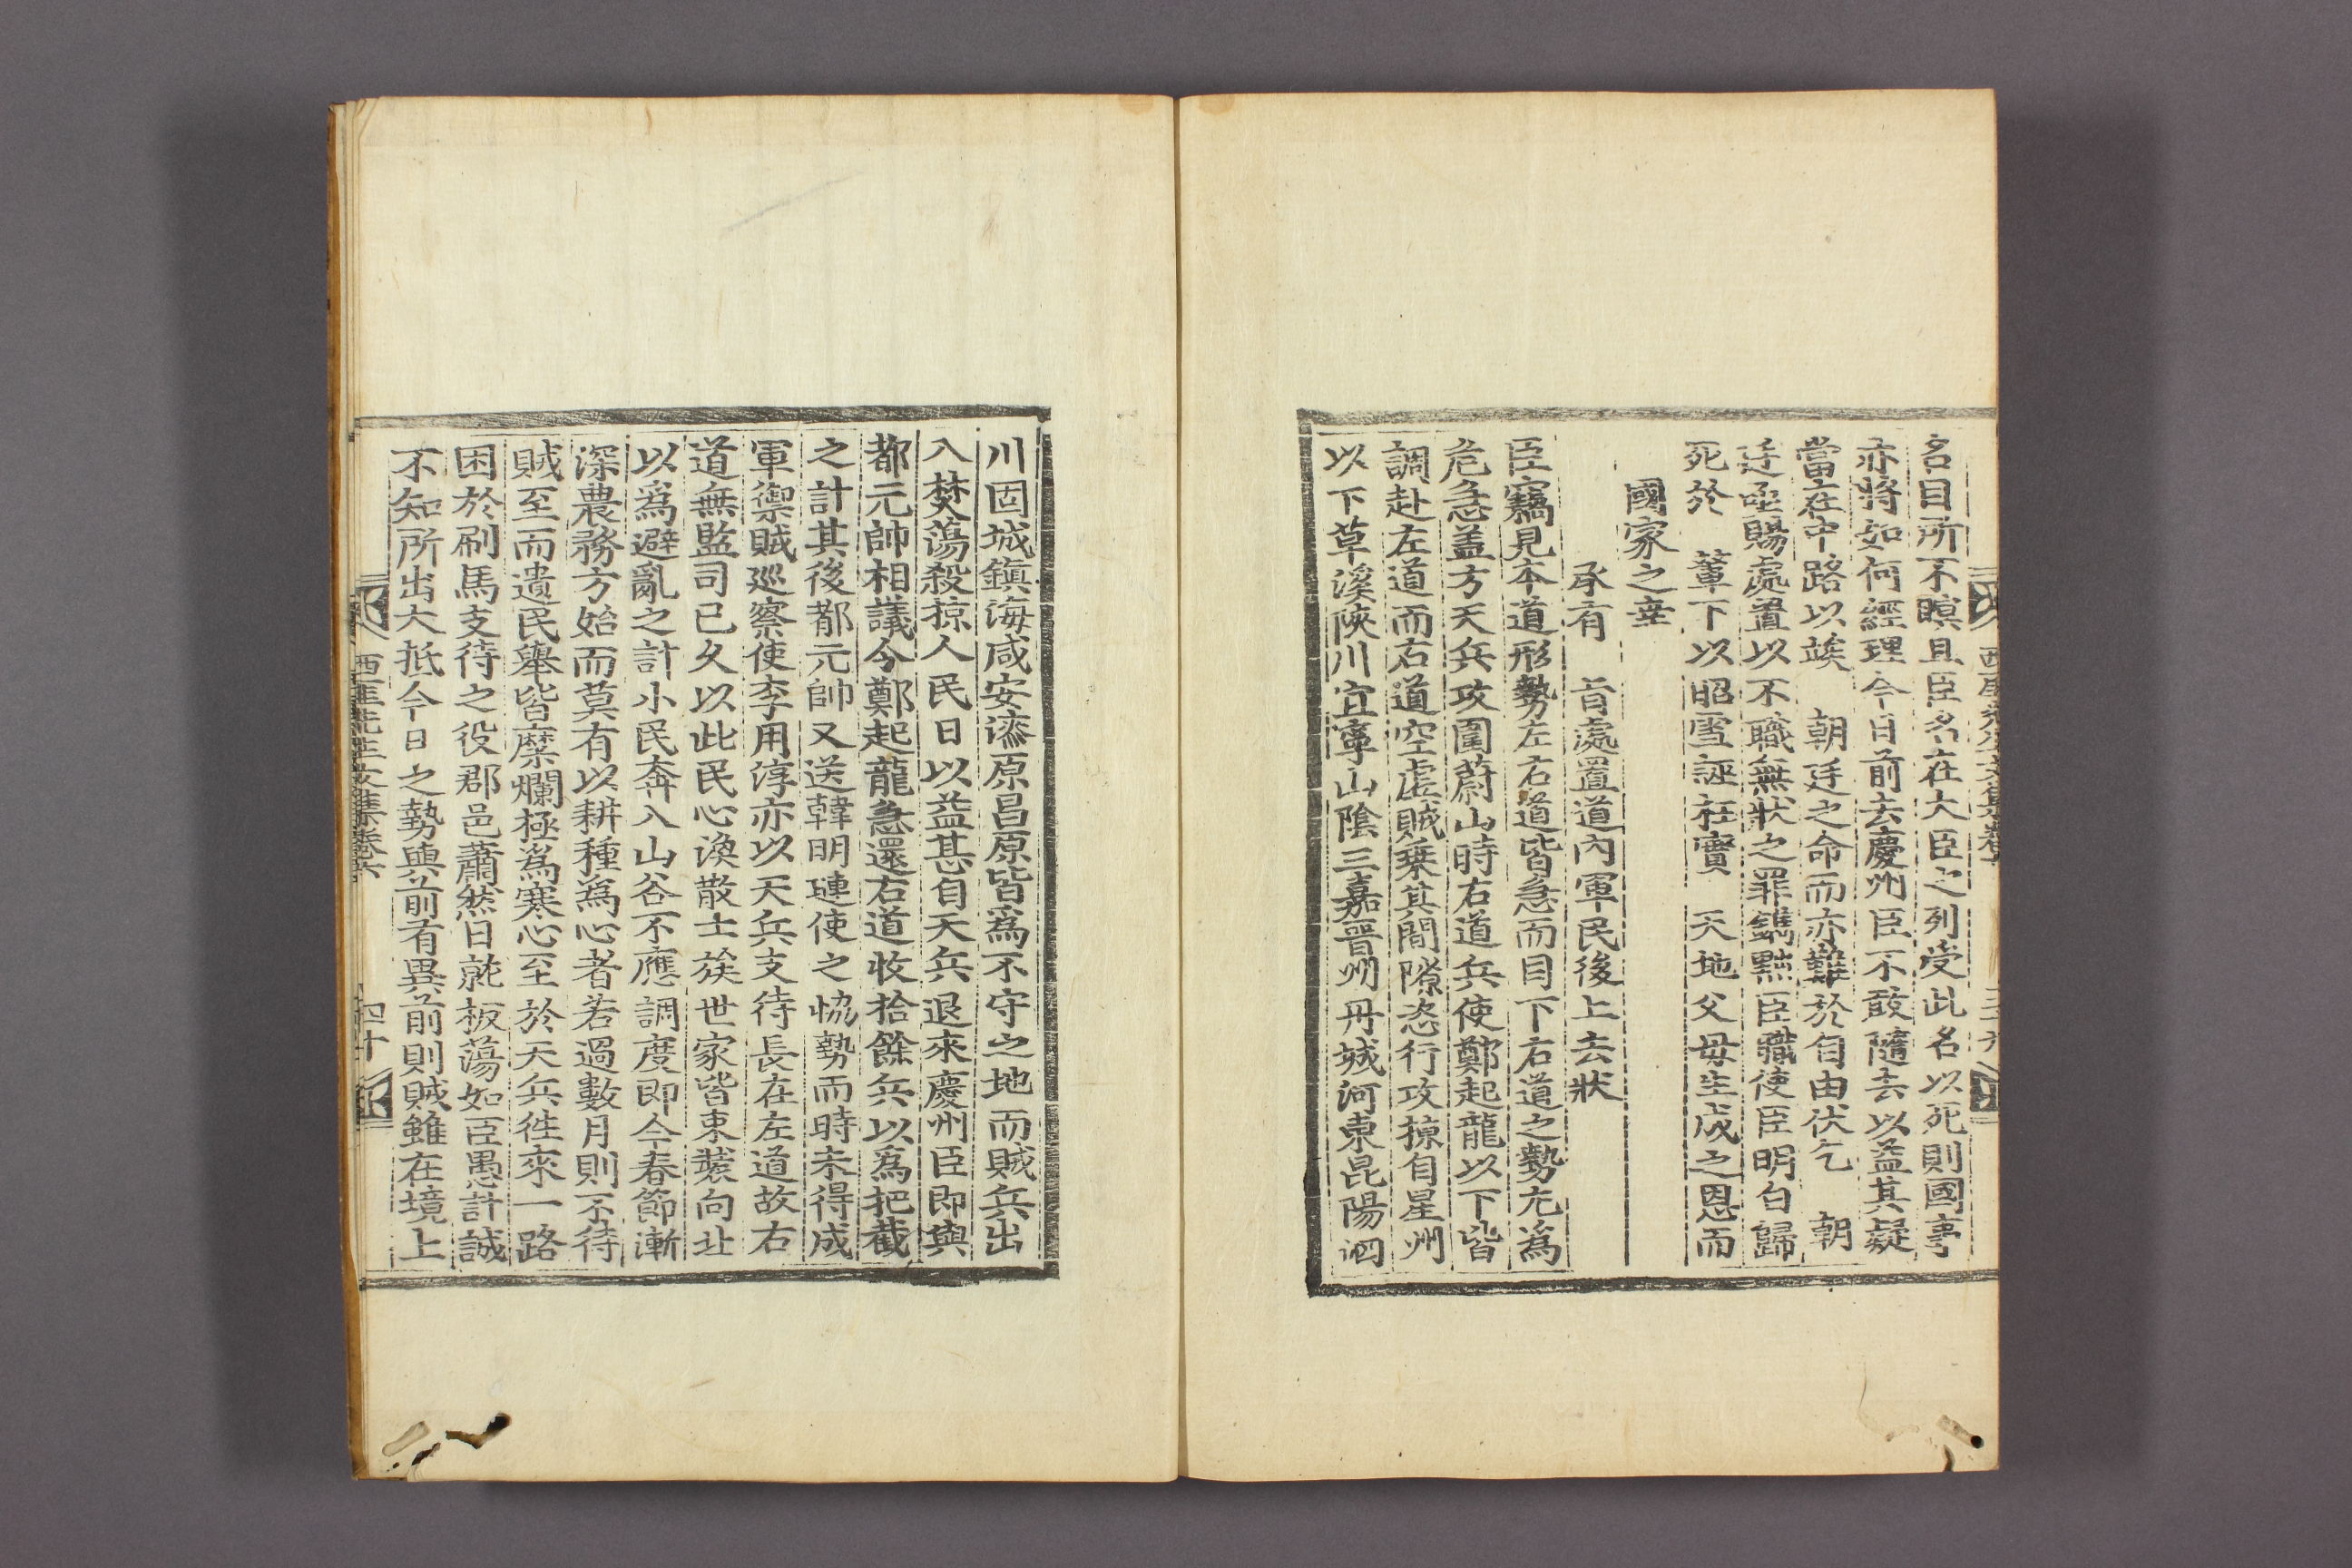 名目所不瞑且臣名在大臣之列受此名以死則國事
亦將如何經理今日前去慶州臣不敢隨去以益其疑
當在中路以竢 朝廷之命而亦難於自由伏乞 朝
廷亟賜處置以不職無狀之罪鐫黜臣職使臣明白歸
死於 輦下以昭雪誣枉實 天地父母生成之恩而
國家之幸
承有 旨處置道內軍民後上去狀
臣竊見本道形勢左右道皆急而目下右道之勢尤爲
危急盖方天兵攻圍蔚山時右道兵使鄭起龍以下皆
調赴左道而右道空虛賊乘其間隙恣行攻掠自星州
以下草溪陜川宜寧山陰三嘉晋州丹城河東昆陽泗
川固城鎭海咸安漆原昌原皆爲不守之地而賊兵出
入焚蕩殺掠人民日以益甚自天兵退來慶州臣即與
都元帥相議令鄭起龍急還右道收拾餘兵以爲把截
之計其後都元帥又送韓明璉使之恊勢而時未得成
軍禦賊巡察使李用淳亦以天兵支待長在左道故右
道無監司已久以此民心渙散士族世家皆束裝向北
以爲避亂之計小民奔入山谷不應調度即今春節漸
深農務方始而莫有以耕種爲心者若過數月則不待
賊至而遺民擧皆糜爛極爲寒心至於天兵徃來一路
困於刷馬支待之役郡邑蕭然日就板蕩如臣愚計誠
不知所出大抵今日之勢與前有異前則賊雖在境上
西厓先生文集卷六
四十